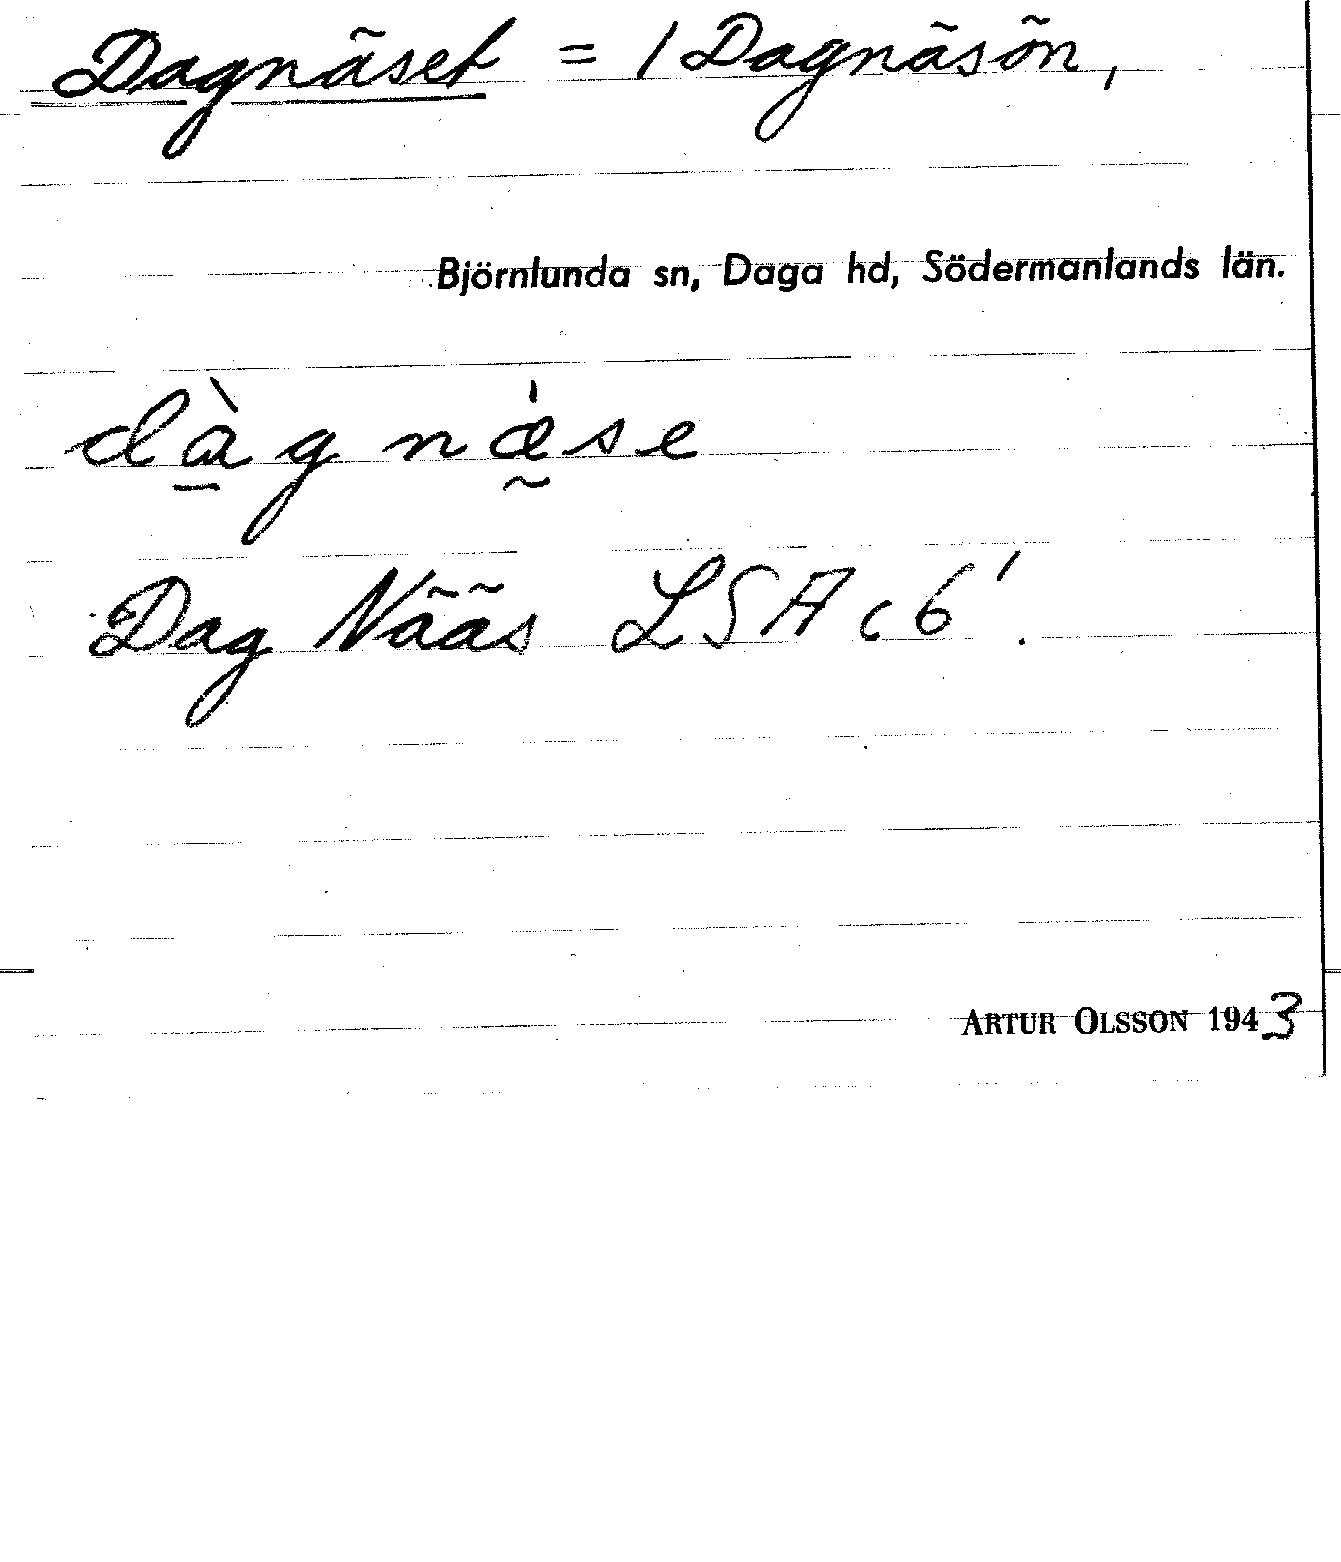 Dagnäset = 1 Dagnäsön,
Björnlunda sn, Daga hd, Södermanlands län.
dà̱gnæ̰̍se
Dag Nääs LSA c6'.
ARTUR OLSSON 1943